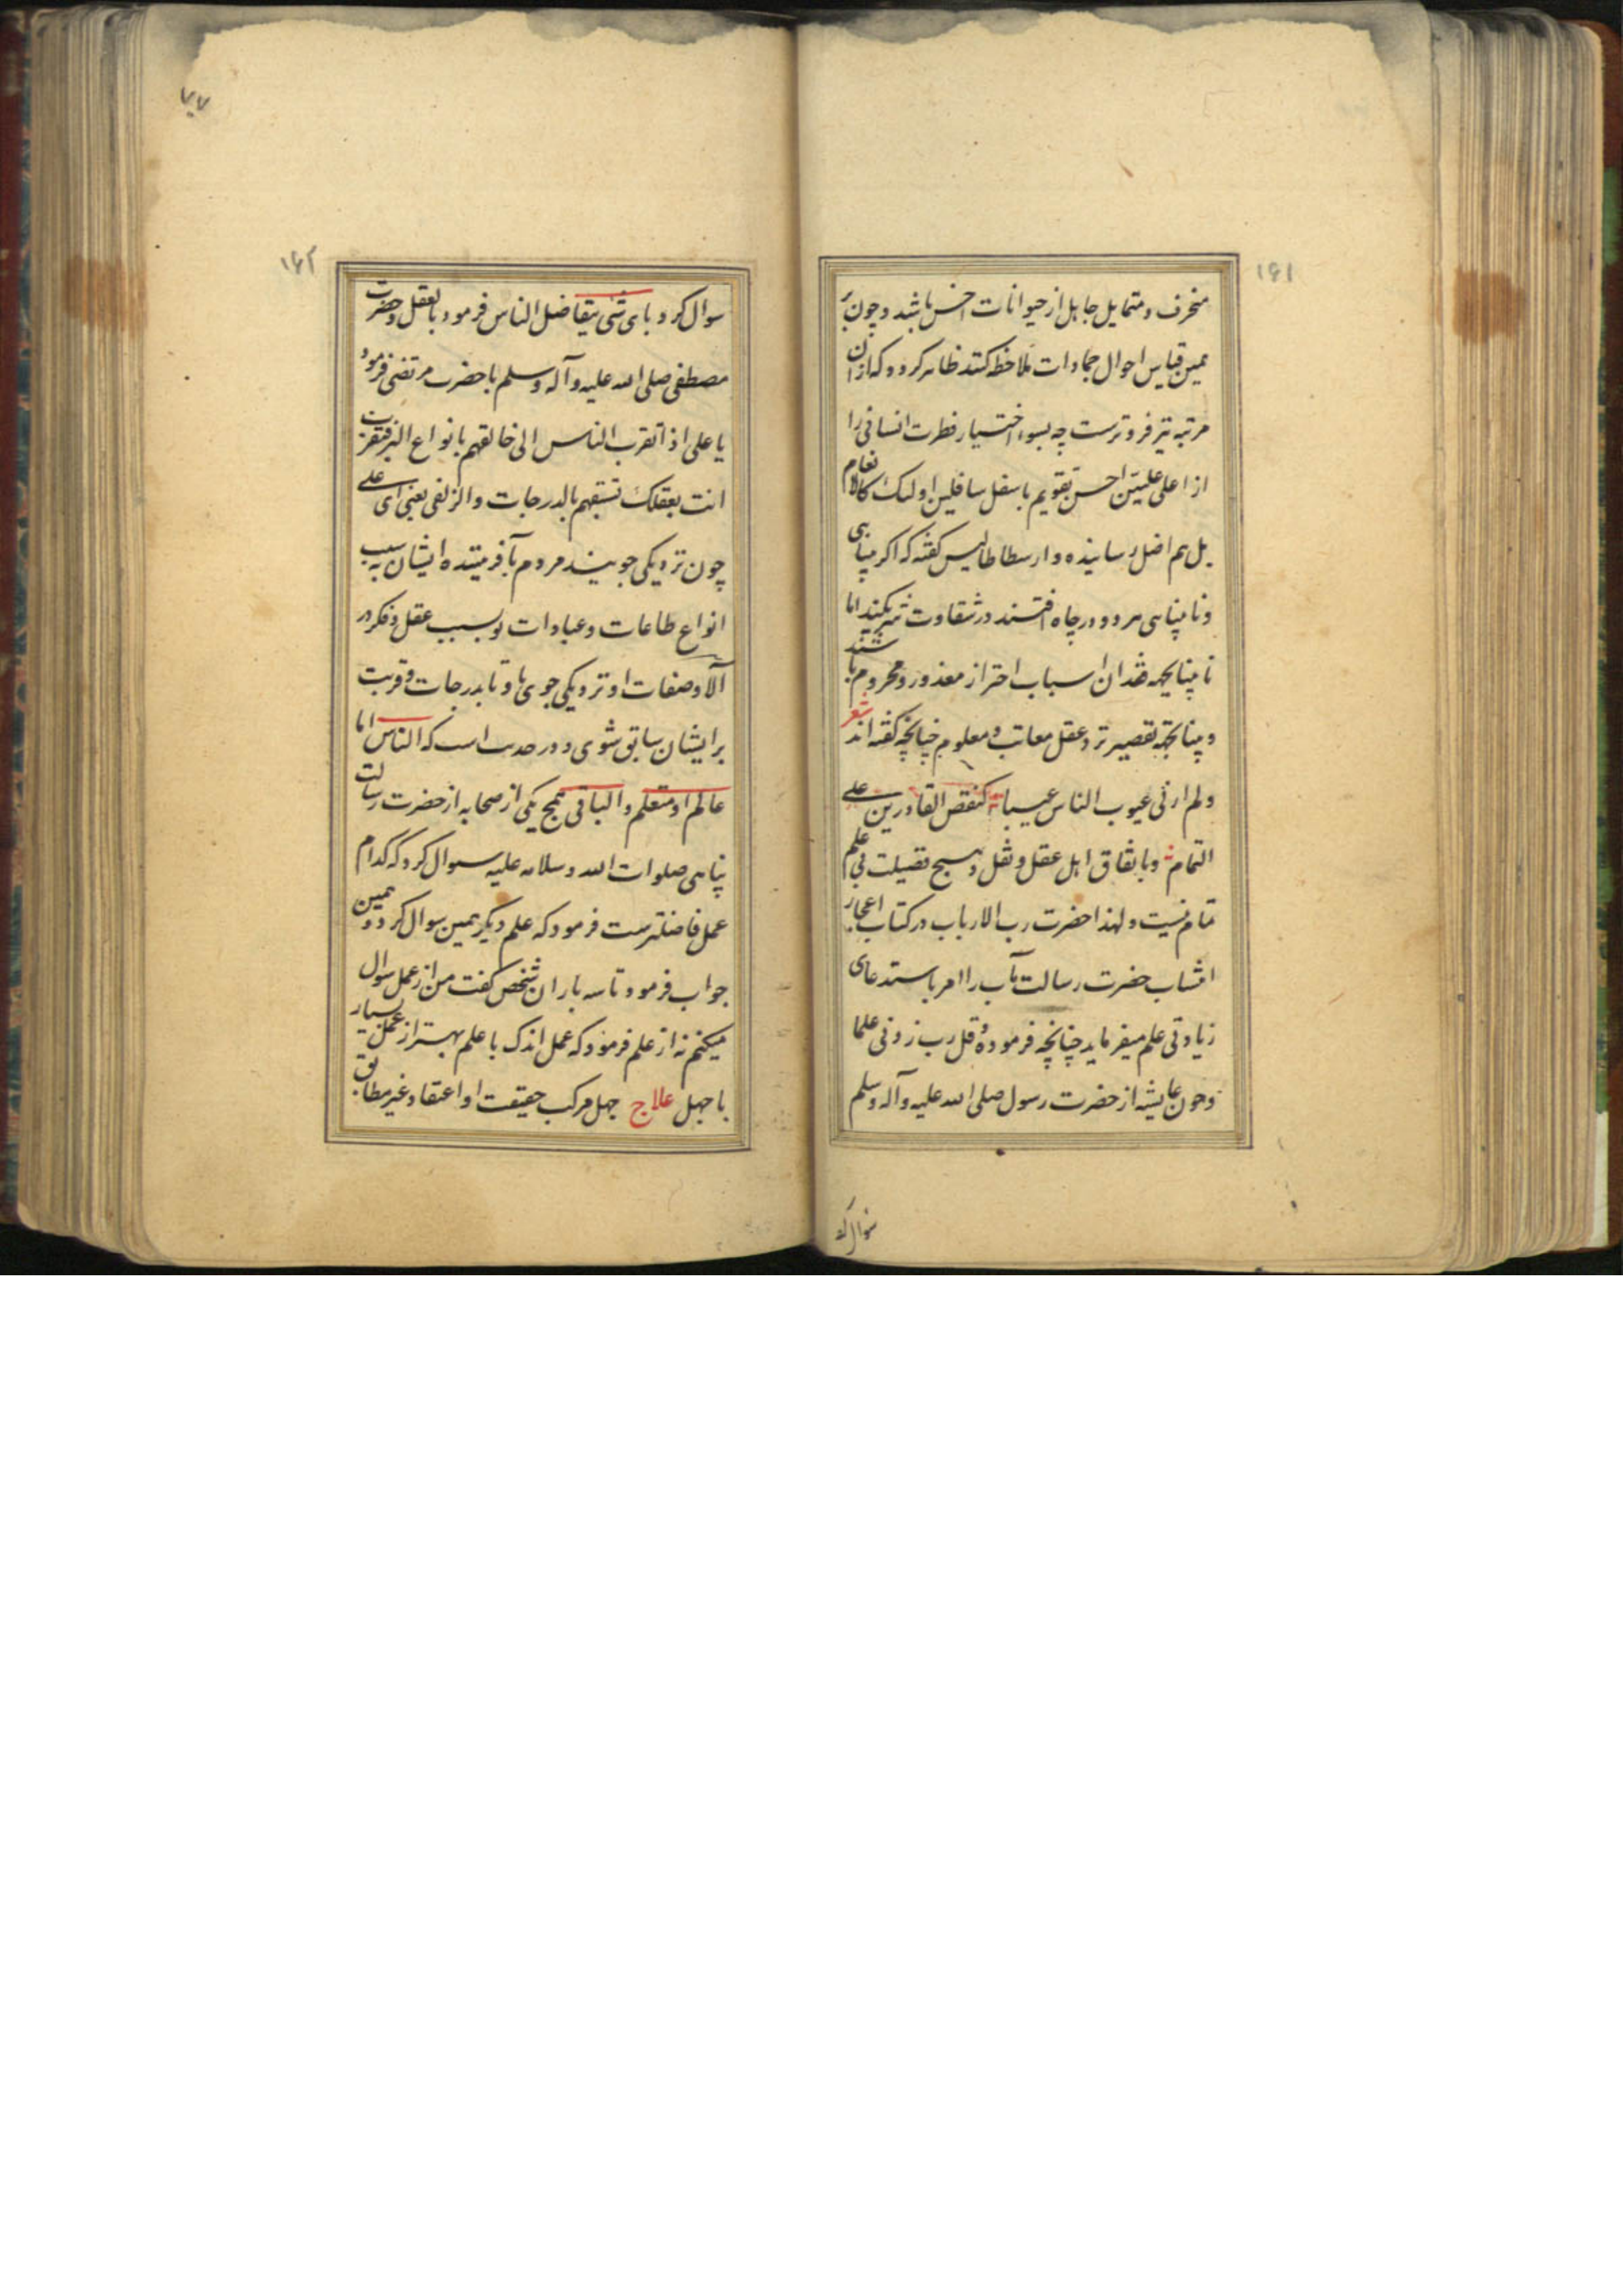 ۱۶۱
منحرف و متمایل جاهل از حیوانات اخس باشد و چون بر
همین قیاس احوال جمادات ملاحظه کنند ظاهر کردد که از ان
مرتبه نیز فروترست چه بسوء اختیار فطرت انسانی را
از اعلی علیین احسن تقویم باسفل سافلین اولئک کالانعام
بل هم اضل رسانیده و ارسطاطالیس کفته که اکر بینایی
و نابینایی هر دو در چاه افتند در شقاوت شریکند اما
نابینا بجهه فقدان اسباب احتراز معذور و محروم باشند
و بینا بجهه تقصیر نزد عقل معاتب و معلوم چنانچه کفته اند شعر
ولم ار فی عیوب الناس عیبا کنقص القادرین علی
التمام و باتفاق اهل عقل و نقل هیچ فضیلت بی علم
تمام نیست و لهذا حضرت رب الارباب در کتاب اعجاز
انتساب حضرت رسالت مآب را امر باستدعای
زیادتی علم میفرماید چنانچه فرموده و قل رب زدنی علما
و چون عایشه از حضرت رسول صلی الله علیه و آله و سلم
سوال کرد
۷۷
۱۶۲
سوال کرد بای شئ یتفاضل الناس فرمود بالعقل و حضرت
مصطفی صلی الله علیه و آله و سلم با حضرت مرتضی فرمود
یا علی اذا تقرب الناس الی خالقهم بانواع البر فتقرب
انت بعقلک تسبقهم بالدرجات والزلفی یعنی ای علی
چون نزدیکی جویند مردم بآفریننده ایشان به سبب
انواع طاعات و عبادات تو بسبب عقل و فکر در
آلا و صفات او نزدیکی جوی تا بدرجات و قربت
بر ایشان سابق شوی و در حدیث است که الناس اما
عالم او متعلم والباقی همج یکی از صحابه از حضرت رسالت
پناهی صلوات الله و سلامه علیه سوال کرد که کدام
عمل فاضلترست فرمود که علم دیکر همین سوال کرد و همین
جواب فرمود تا سه بار ان شخص کفت من از عمل سوال
میکنم نه از علم فرمود که عمل اندک با علم بهتر از عمل بسیار
با جهل علاج جهل مرکب حقیقت او اعتقاد غیر مطابق